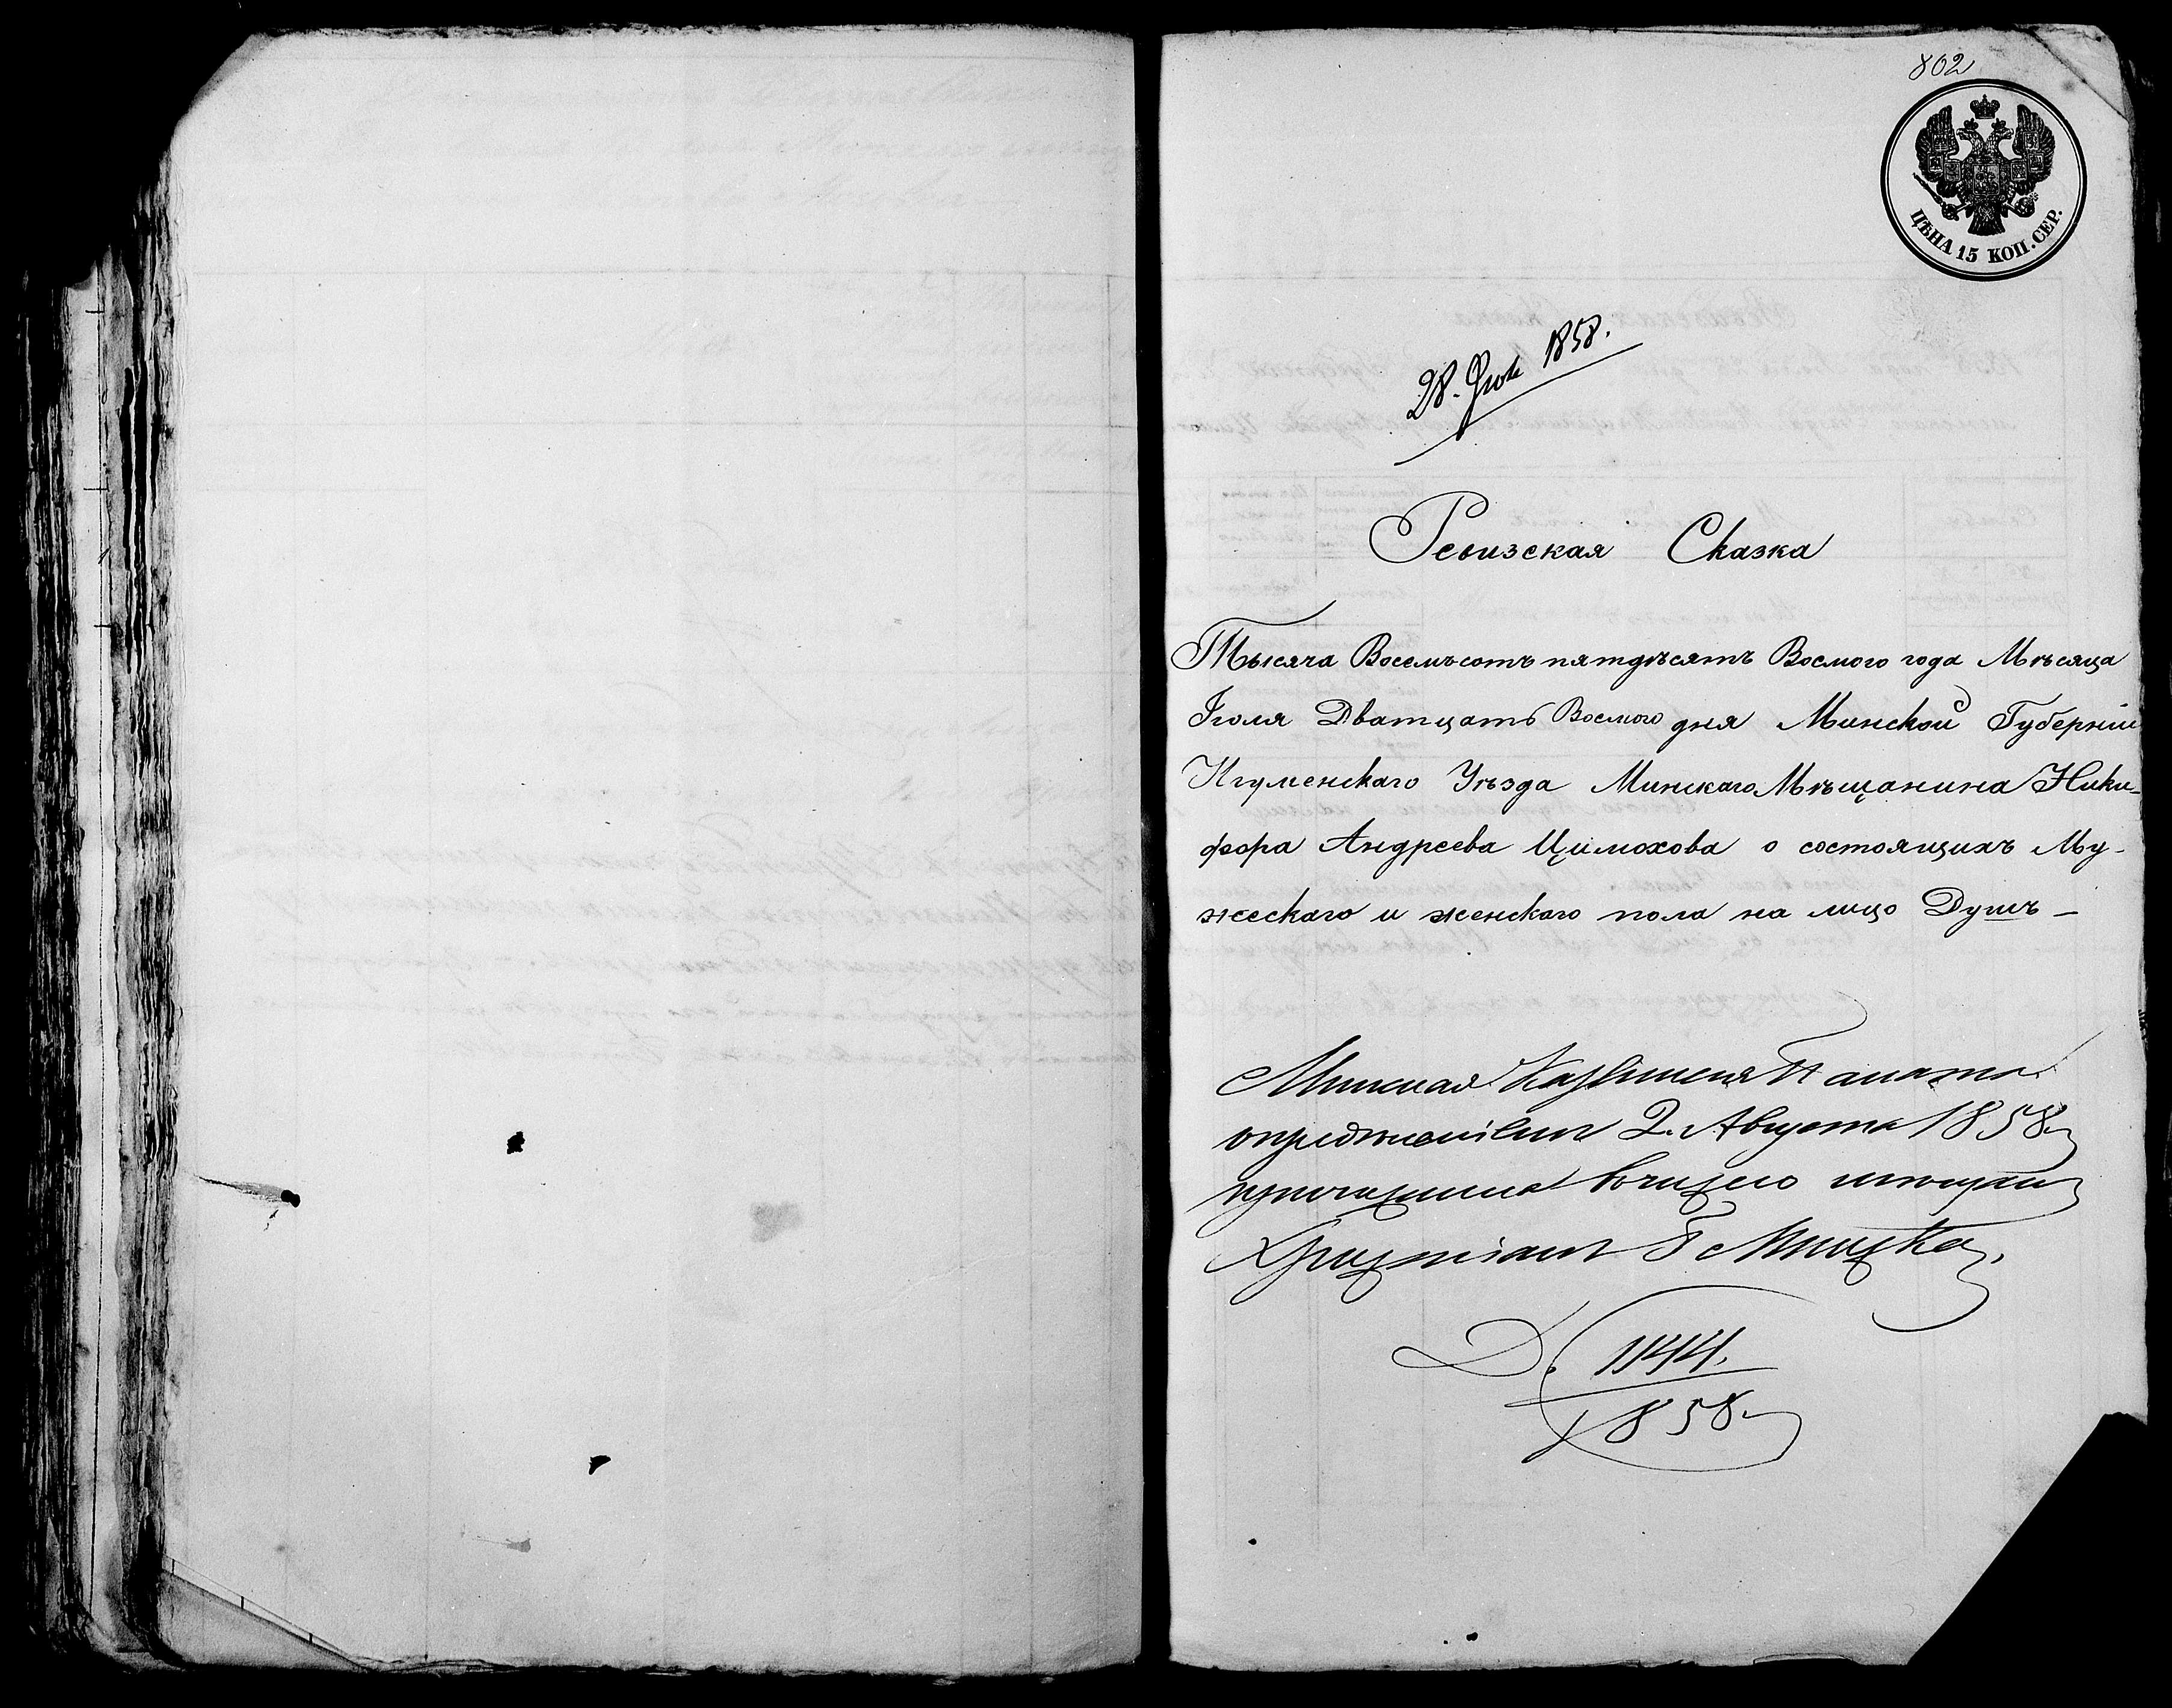 802
ЦѢНА 15 КОП. СЕР.
28. Іюл 1858.
Ревизская Сказка
Тысяча Восемъсотъ пятдѣсятъ Восмого года Мѣсяца
Іюля Дватцать Восмого дня Минской Губерніи
Игуменскаго Уѣзда Минскаго Мѣщанина Ники-
фора Андреева Цимохова о состоящихъ Му-
жескаго и женскаго пола на лицо Душъ —
Минская Казенная Палата
опредѣленіем 2. Августа 1858
причислила въ число
Христіанъ Г. Минска.
Д. 1144.
1858